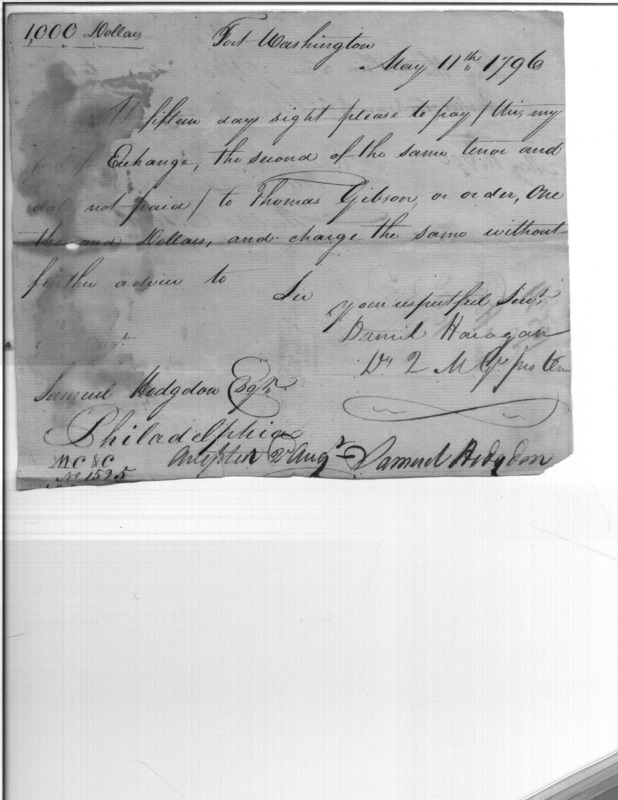 1,000 Dollars
Fort Washington
May 11th 1796
At fifteen days sight please to pay / this, my
of Exchange, the second of the same tenor and
date not paid / to Thomas Gibson, or order, One
thousand Dollars, and charge the same without
further advice to
Sir
your respectful Servt
Daniel Haragan
Dy Q M G pro tem
Samuel Hodgdon Esqr
Philadelphia
Accepted 2d Augt Samuel Hodgdon
MC & C
No 1525